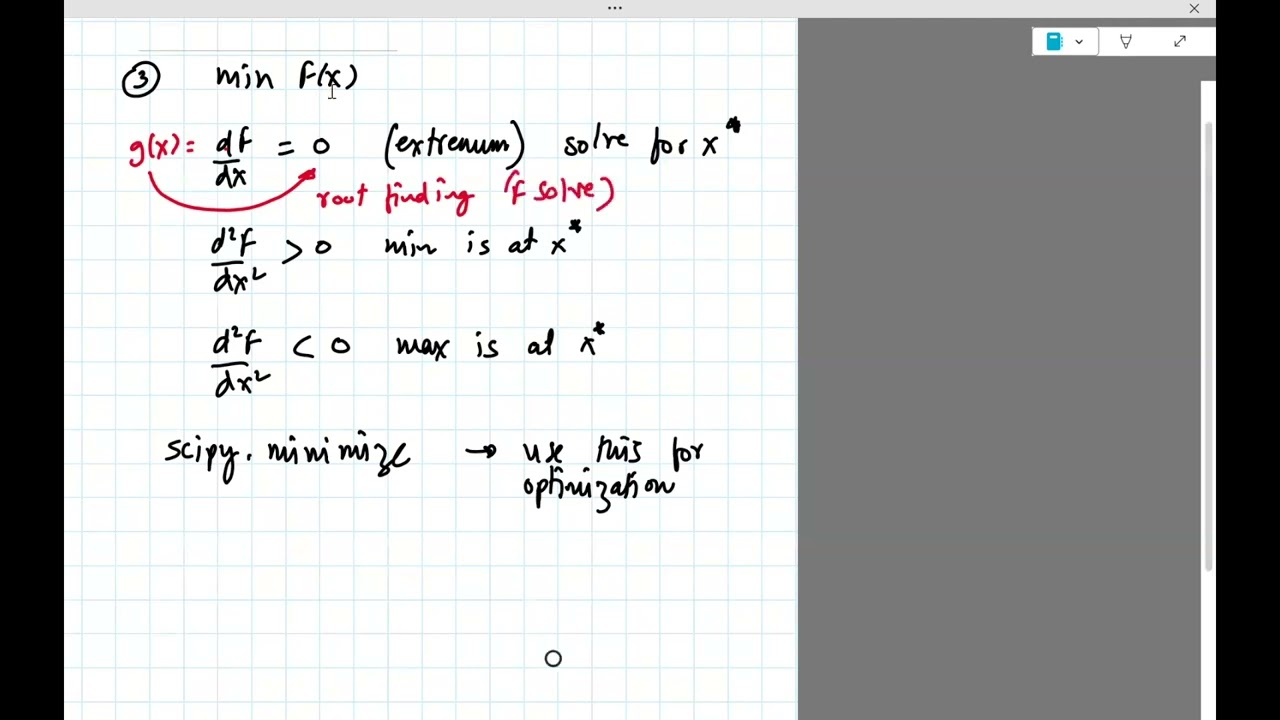 ③ min F(x)
g(x) = dF/dx = 0 (extremum) solve for x*
root finding (fsolve)
d²F/dx² > 0 min is at x*
d²F/dx² < 0 max is at x*
scipy.minimize → use this for
optimization